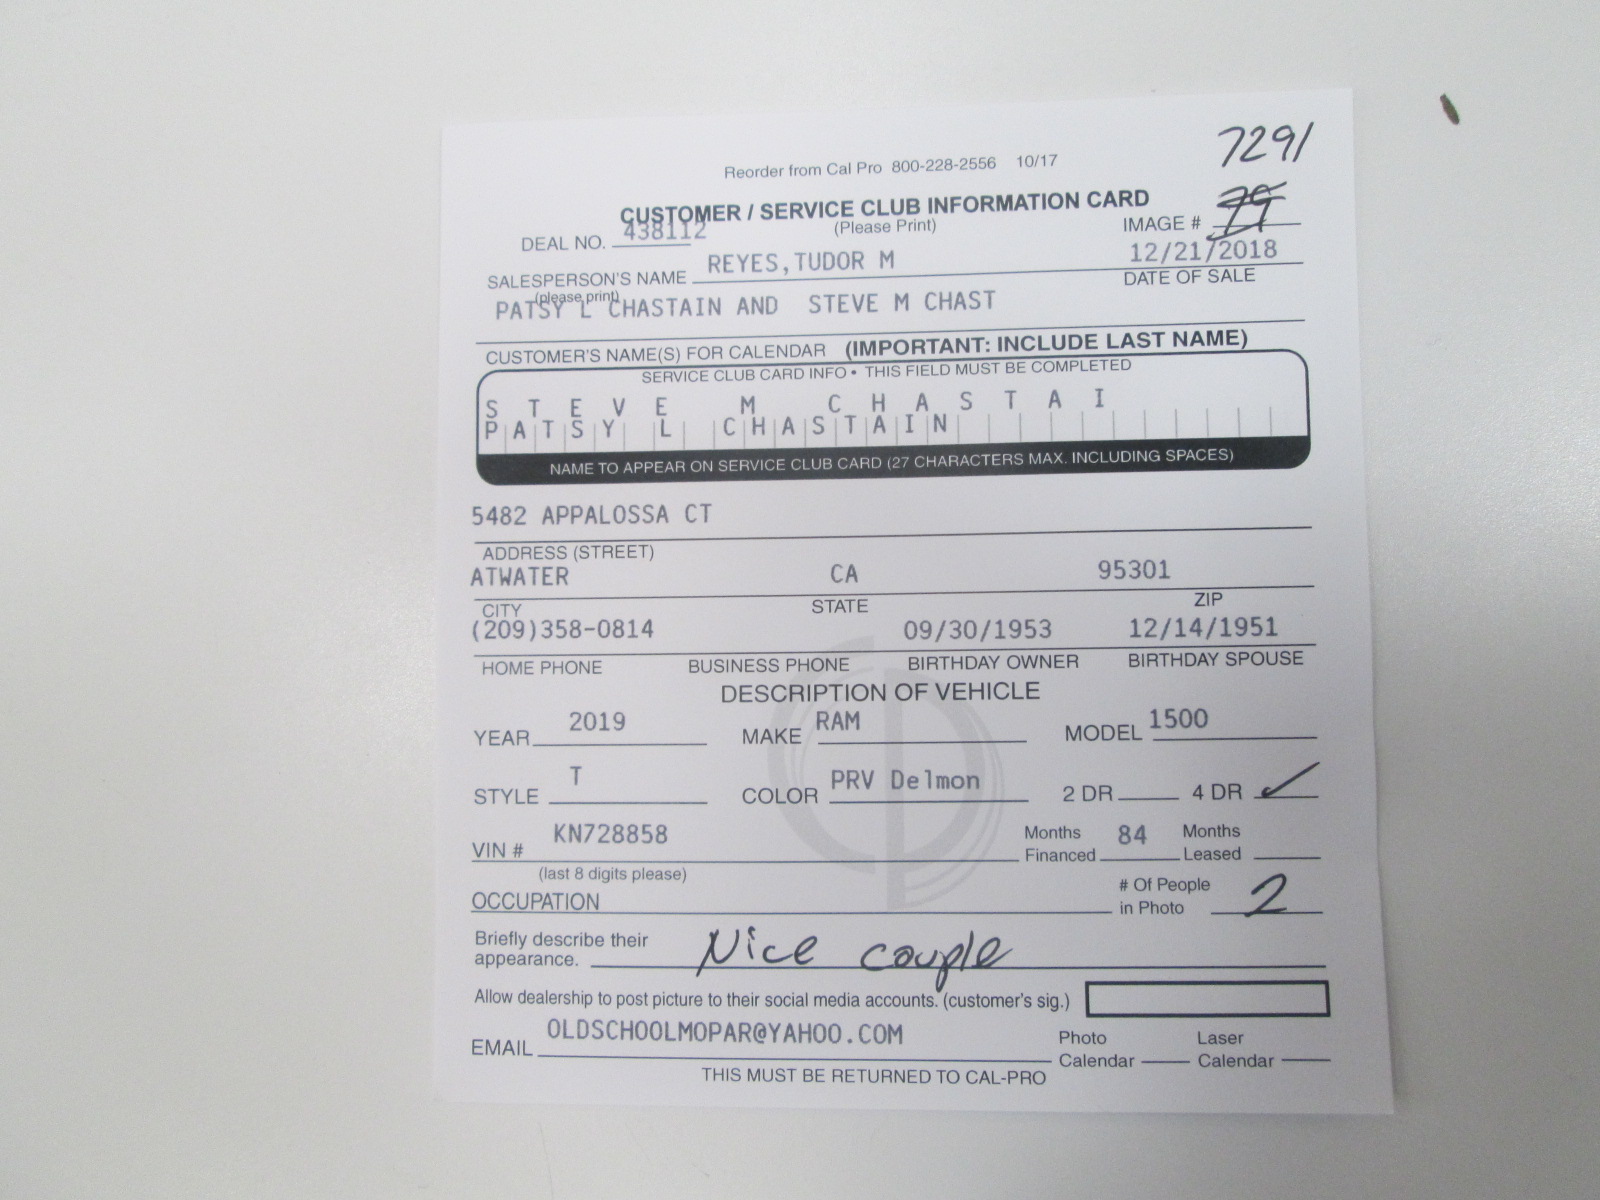 7291
Reorder from Cal Pro 800-228-2556 10/17
CUSTOMER / SERVICE CLUB INFORMATION CARD
DEAL NO. 438112 (Please Print) IMAGE #
REYES,TUDOR M 12/21/2018
SALESPERSON'S NAME DATE OF SALE
(please print)
PATSY L CHASTAIN AND STEVE M CHAST
CUSTOMER'S NAME(S) FOR CALENDAR (IMPORTANT: INCLUDE LAST NAME)
SERVICE CLUB CARD INFO • THIS FIELD MUST BE COMPLETED
S T E V E M C H A S T A I
P A T S Y L C H A S T A I N
NAME TO APPEAR ON SERVICE CLUB CARD (27 CHARACTERS MAX. INCLUDING SPACES)
5482 APPALOSSA CT
ADDRESS (STREET)
ATWATER CA 95301
CITY STATE ZIP
(209)358-0814 09/30/1953 12/14/1951
HOME PHONE BUSINESS PHONE BIRTHDAY OWNER BIRTHDAY SPOUSE
DESCRIPTION OF VEHICLE
YEAR 2019 MAKE RAM MODEL 1500
STYLE T COLOR PRV Delmon 2 DR 4 DR ✓
VIN # KN728858 Months Financed 84 Months Leased
(last 8 digits please)
OCCUPATION # Of People in Photo 2
Briefly describe their appearance. Nice couple
Allow dealership to post picture to their social media accounts. (customer's sig.)
EMAIL OLDSCHOOLMOPAR@YAHOO.COM Photo Calendar Laser Calendar
THIS MUST BE RETURNED TO CAL-PRO